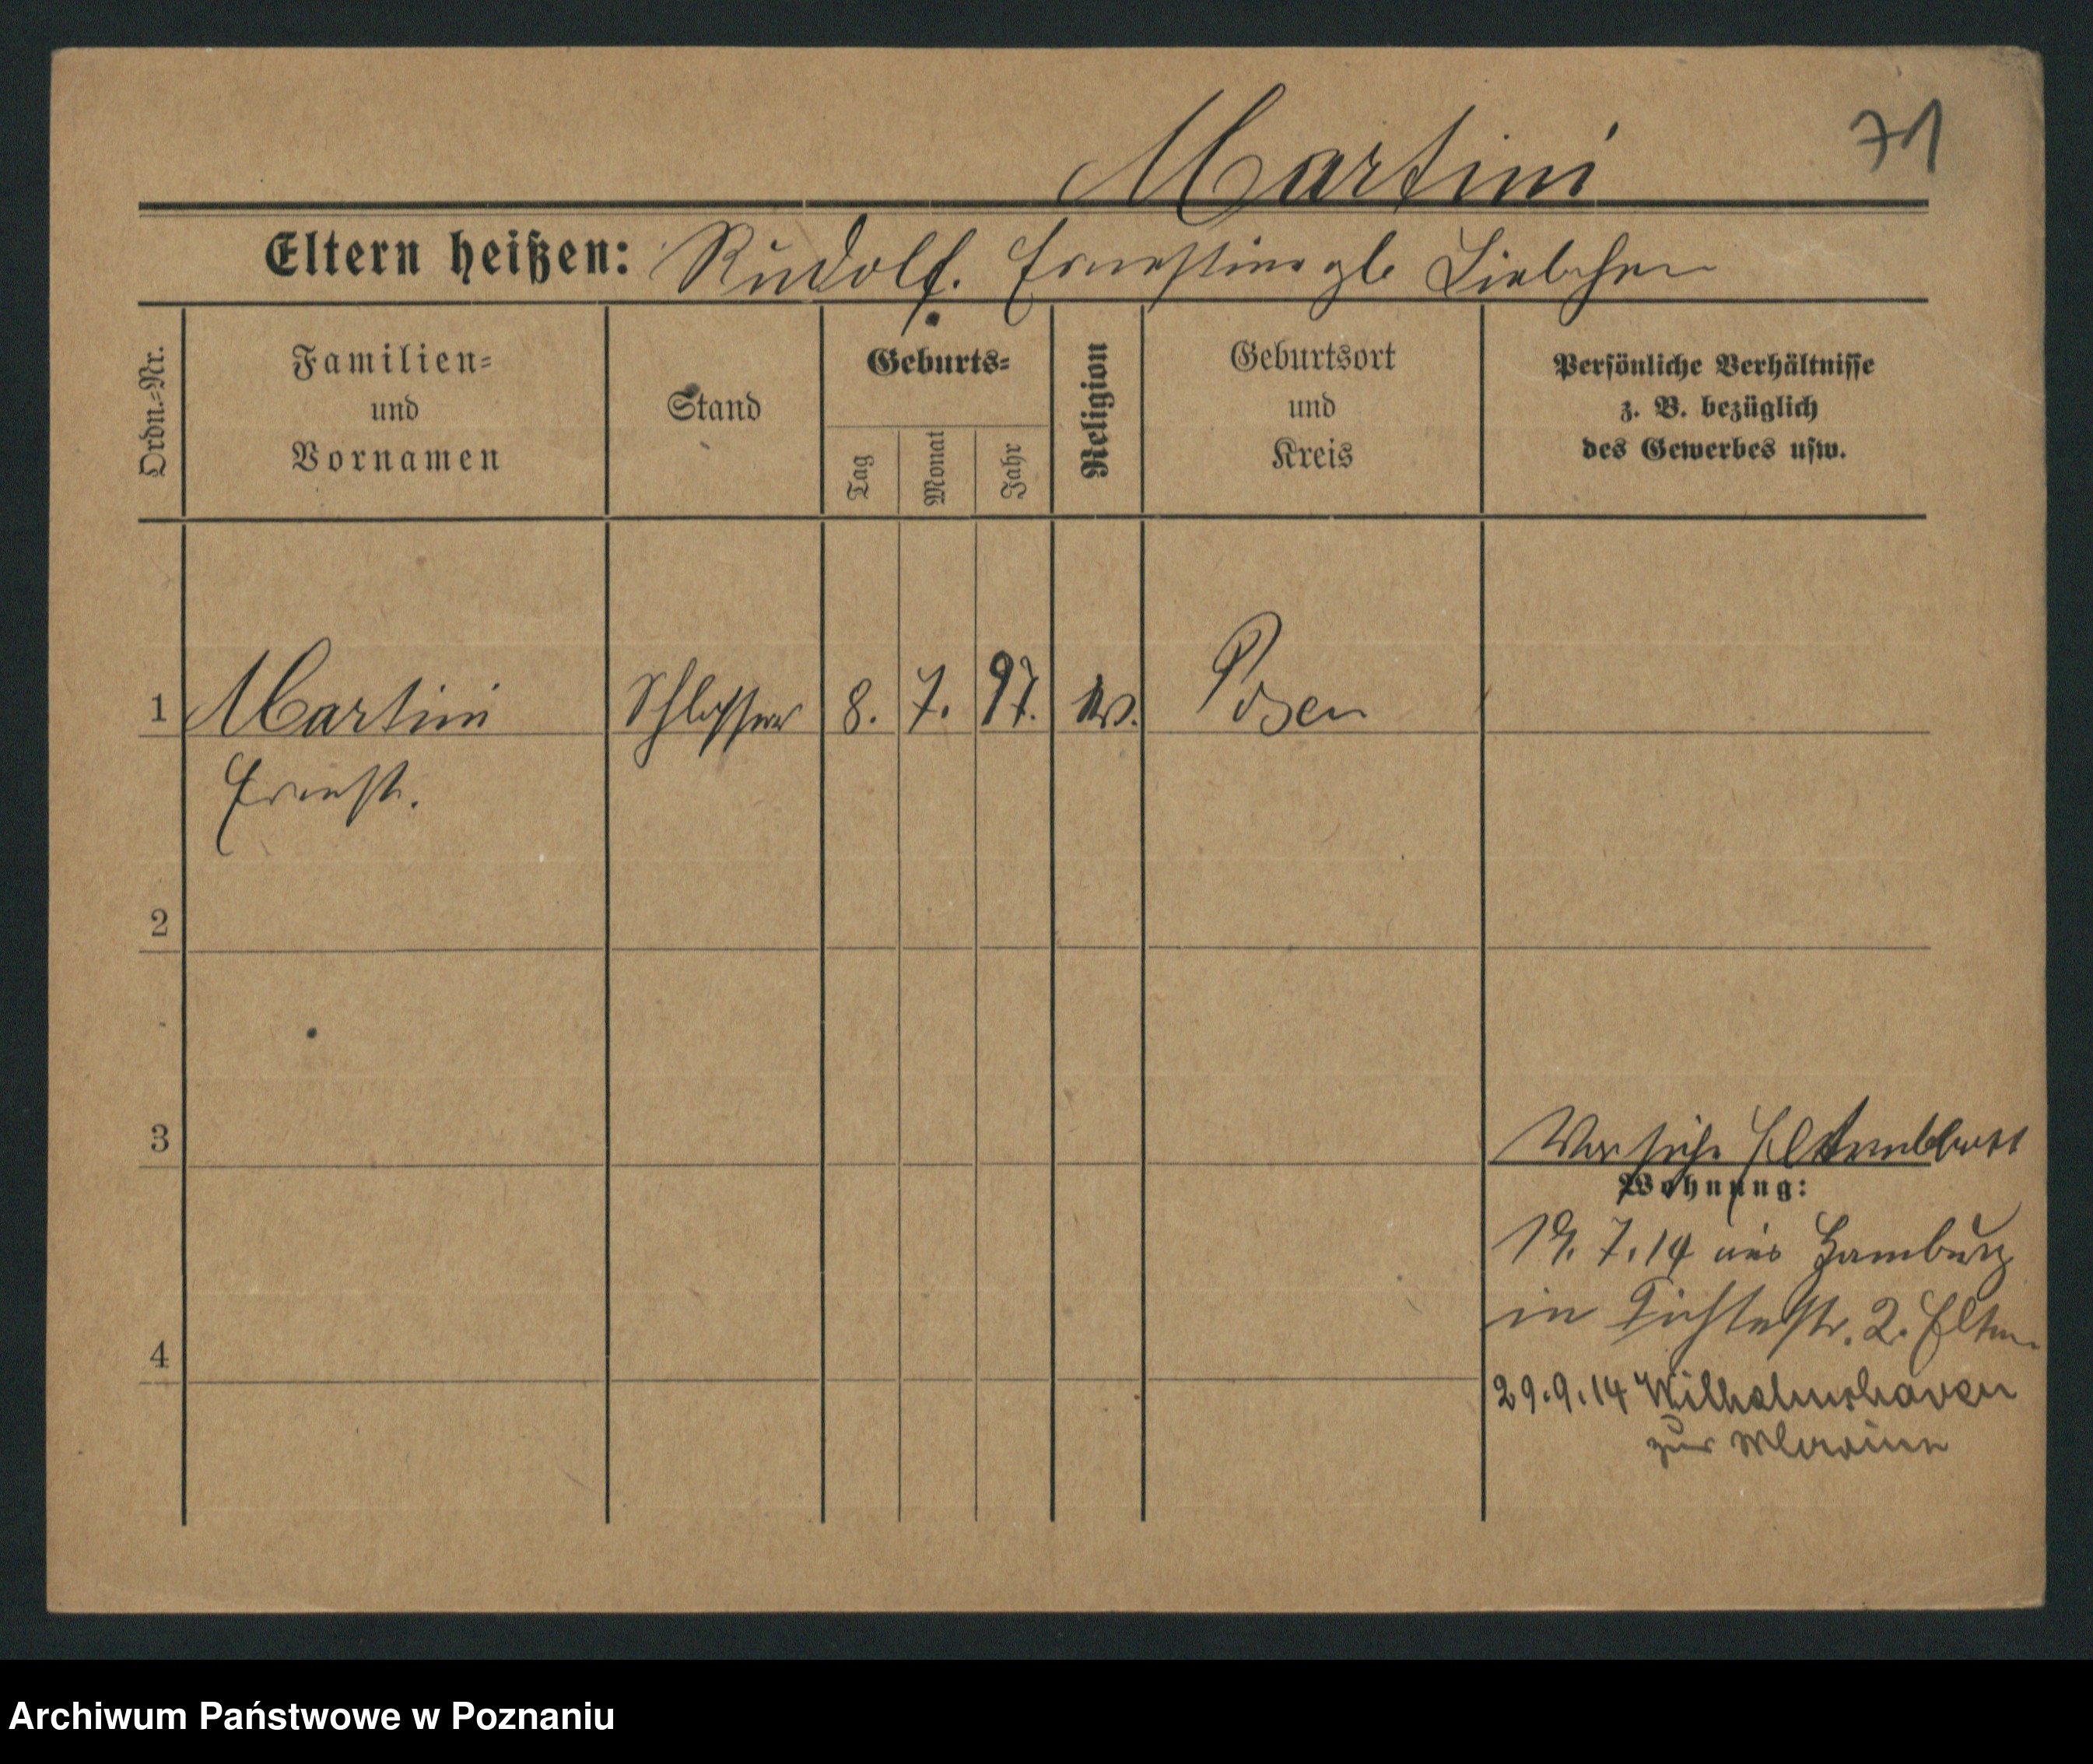 71
Martini
Eltern heißen: Rudolf. Ernestine gb Liebchen
Ordn.-Nr.
Familien-
und
Vornamen
Stand
Geburts-
Tag
Monat
Jahr
Religion
Geburtsort
und
Kreis
Persönliche Verhältnisse
z. B. bezüglich
des Gewerbes usw.
1 Martini Schlosser 8. 7. 97. ev. Posen
Ernst.
2
3
Vor siehe Elternblatt
Wohnung:
19. 7. 14 aus Hamburg
in Fichtestr. 2. Eltern
4
29.9.14 Wilhelmshaven
zur Marine
Archiwum Państwowe w Poznaniu